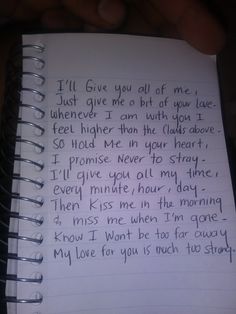 I'll Give you all of me,
Just give me a bit of your love.
whenever I am with you I
feel higher than the Clouds above.
SO Hold Me in your heart,
I promise Never to stray.
I'll give you all my time,
every minute, hour, day.
Then Kiss me in the morning
& miss me when I'm gone.
Know I Wont be too far away
My love for you is much too strong.